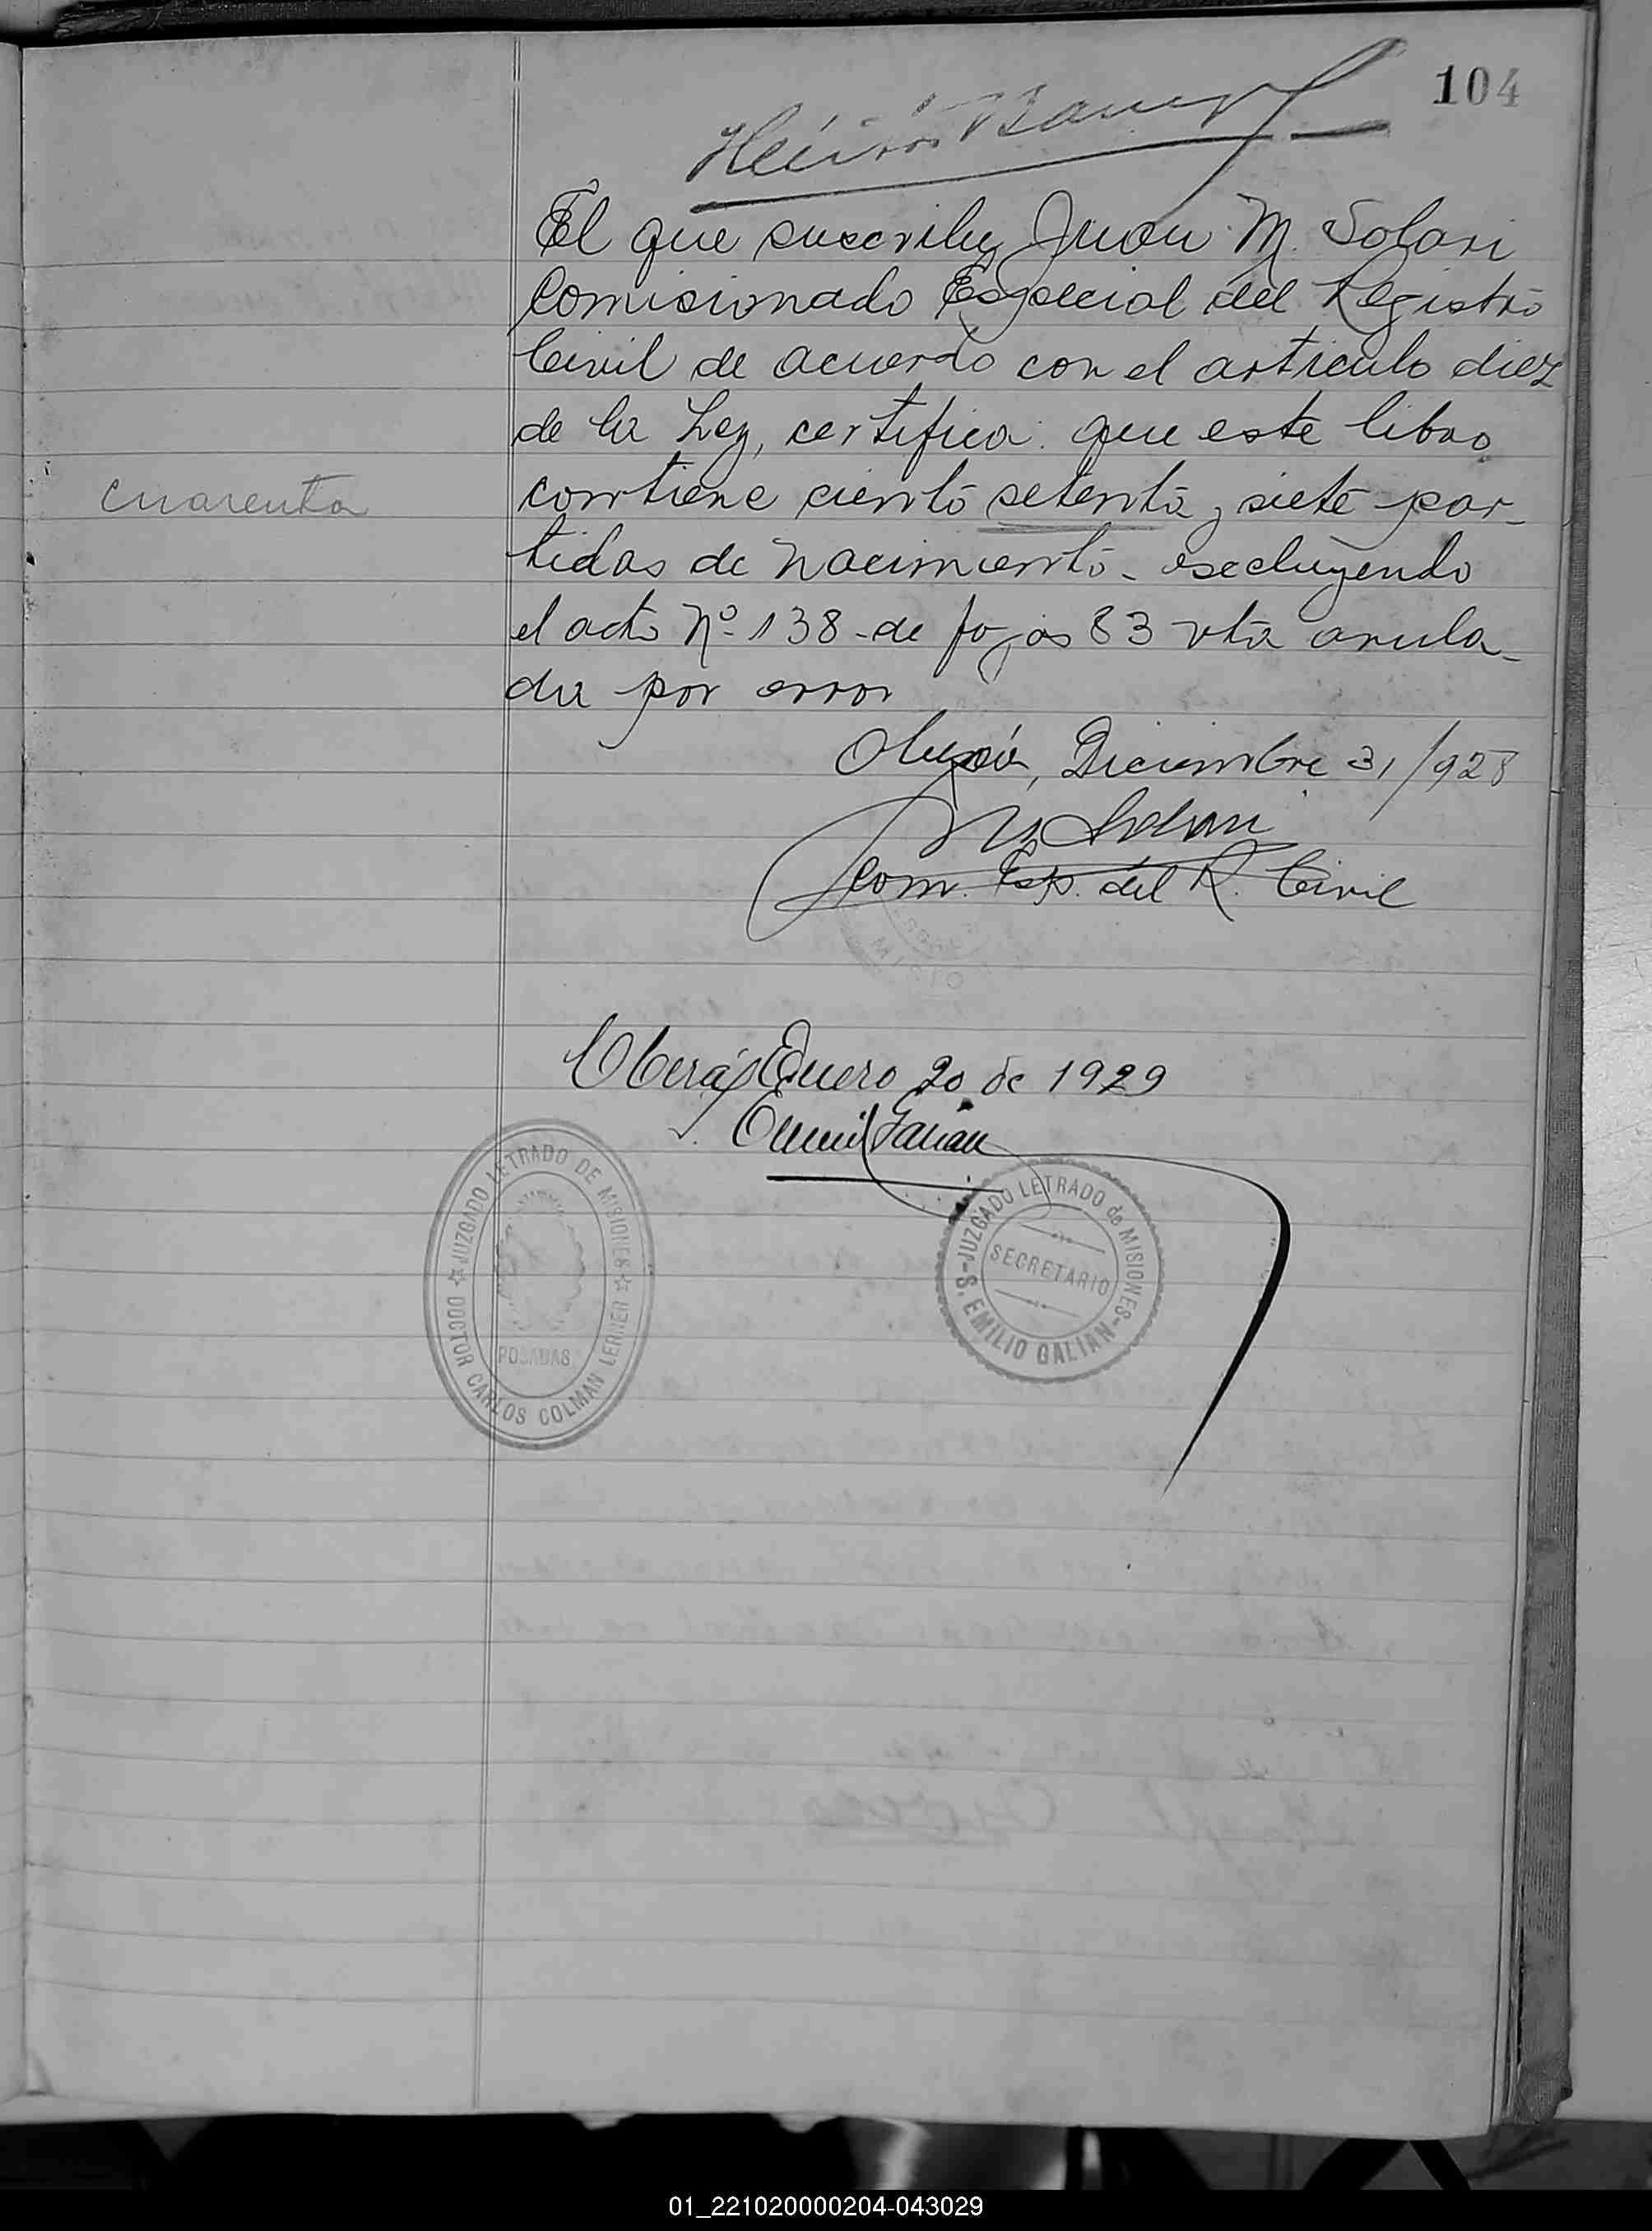 104
El que suscribe, Juan M. Solari
Comisionado Especial del Registro
Civil de acuerdo con el articulo diez
de la Ley, certifica: que este libro
cuarenta
contiene ciento setenta y siete par-
tidas de nacimiento - escluyendo
el acta Nº 138 - de fojas 83 vta anula-
da por error
Diciembre 31/928
Com. Esp. del R. Civil
Oberá, Enero 20 de 1929
JUZGADO LETRADO DE MISIONES
DOCTOR CARLOS COLMAN LERNER
POSADAS
JUZGADO LETRADO de MISIONES
SECRETARIO
S. EMILIO GALIAN
01_221020000204-043029